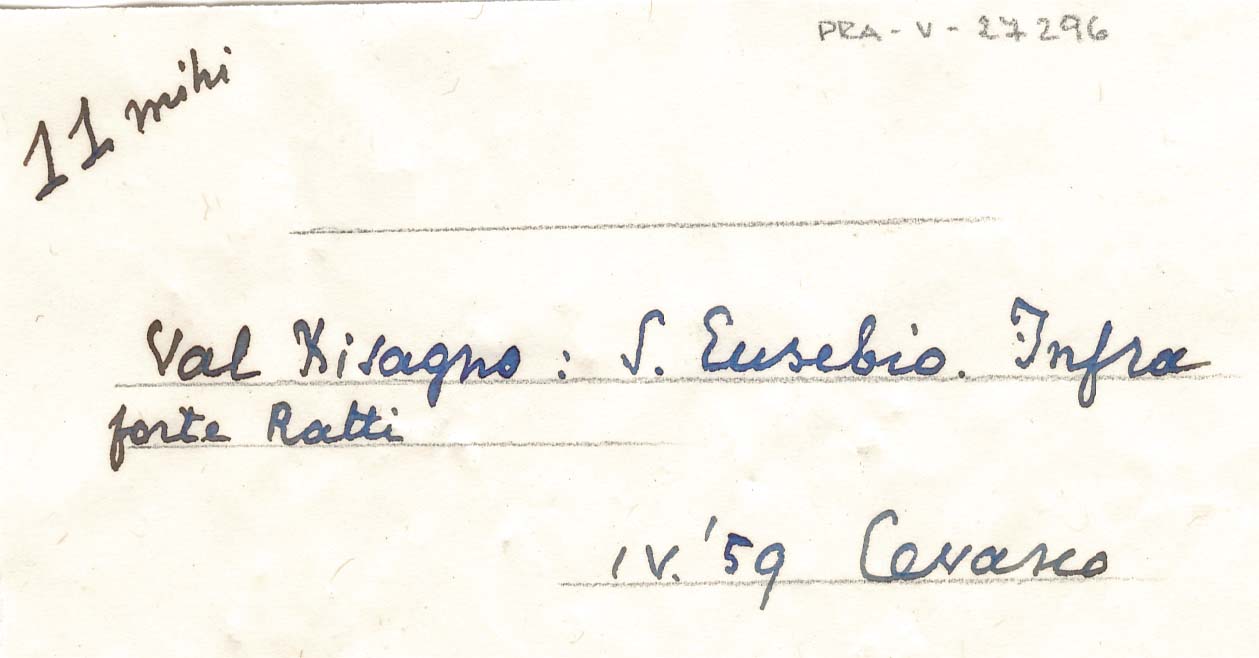 PRA - V - 27296
11 mihi
Val Bisagno : S. Eusebio. Infra
forte Ratti
IV. '59 Cevasco